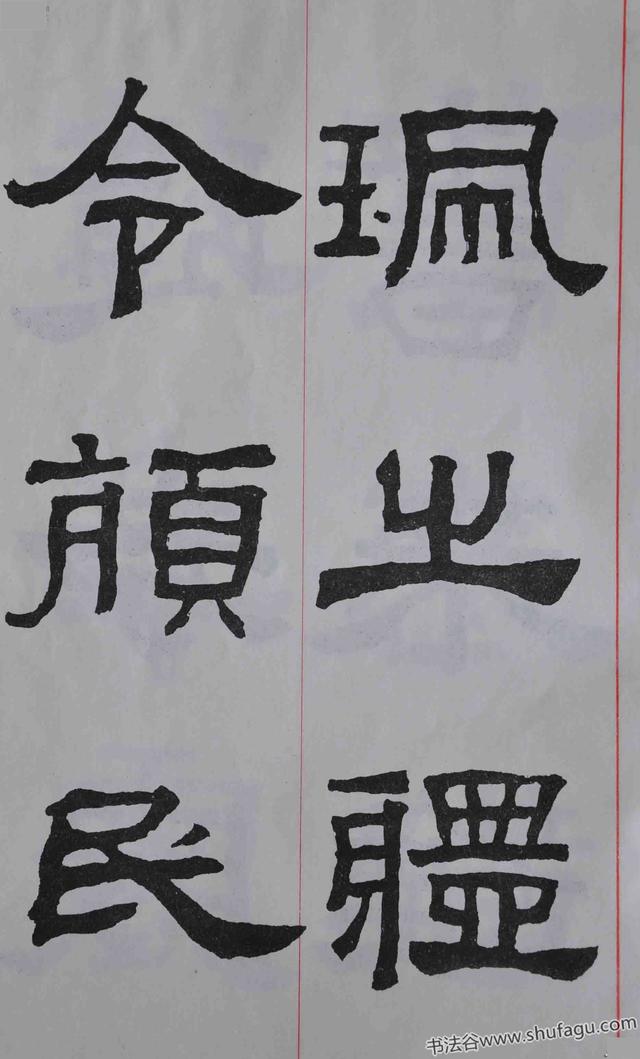 珮之體
令頏民
书法谷www.shufagu.com